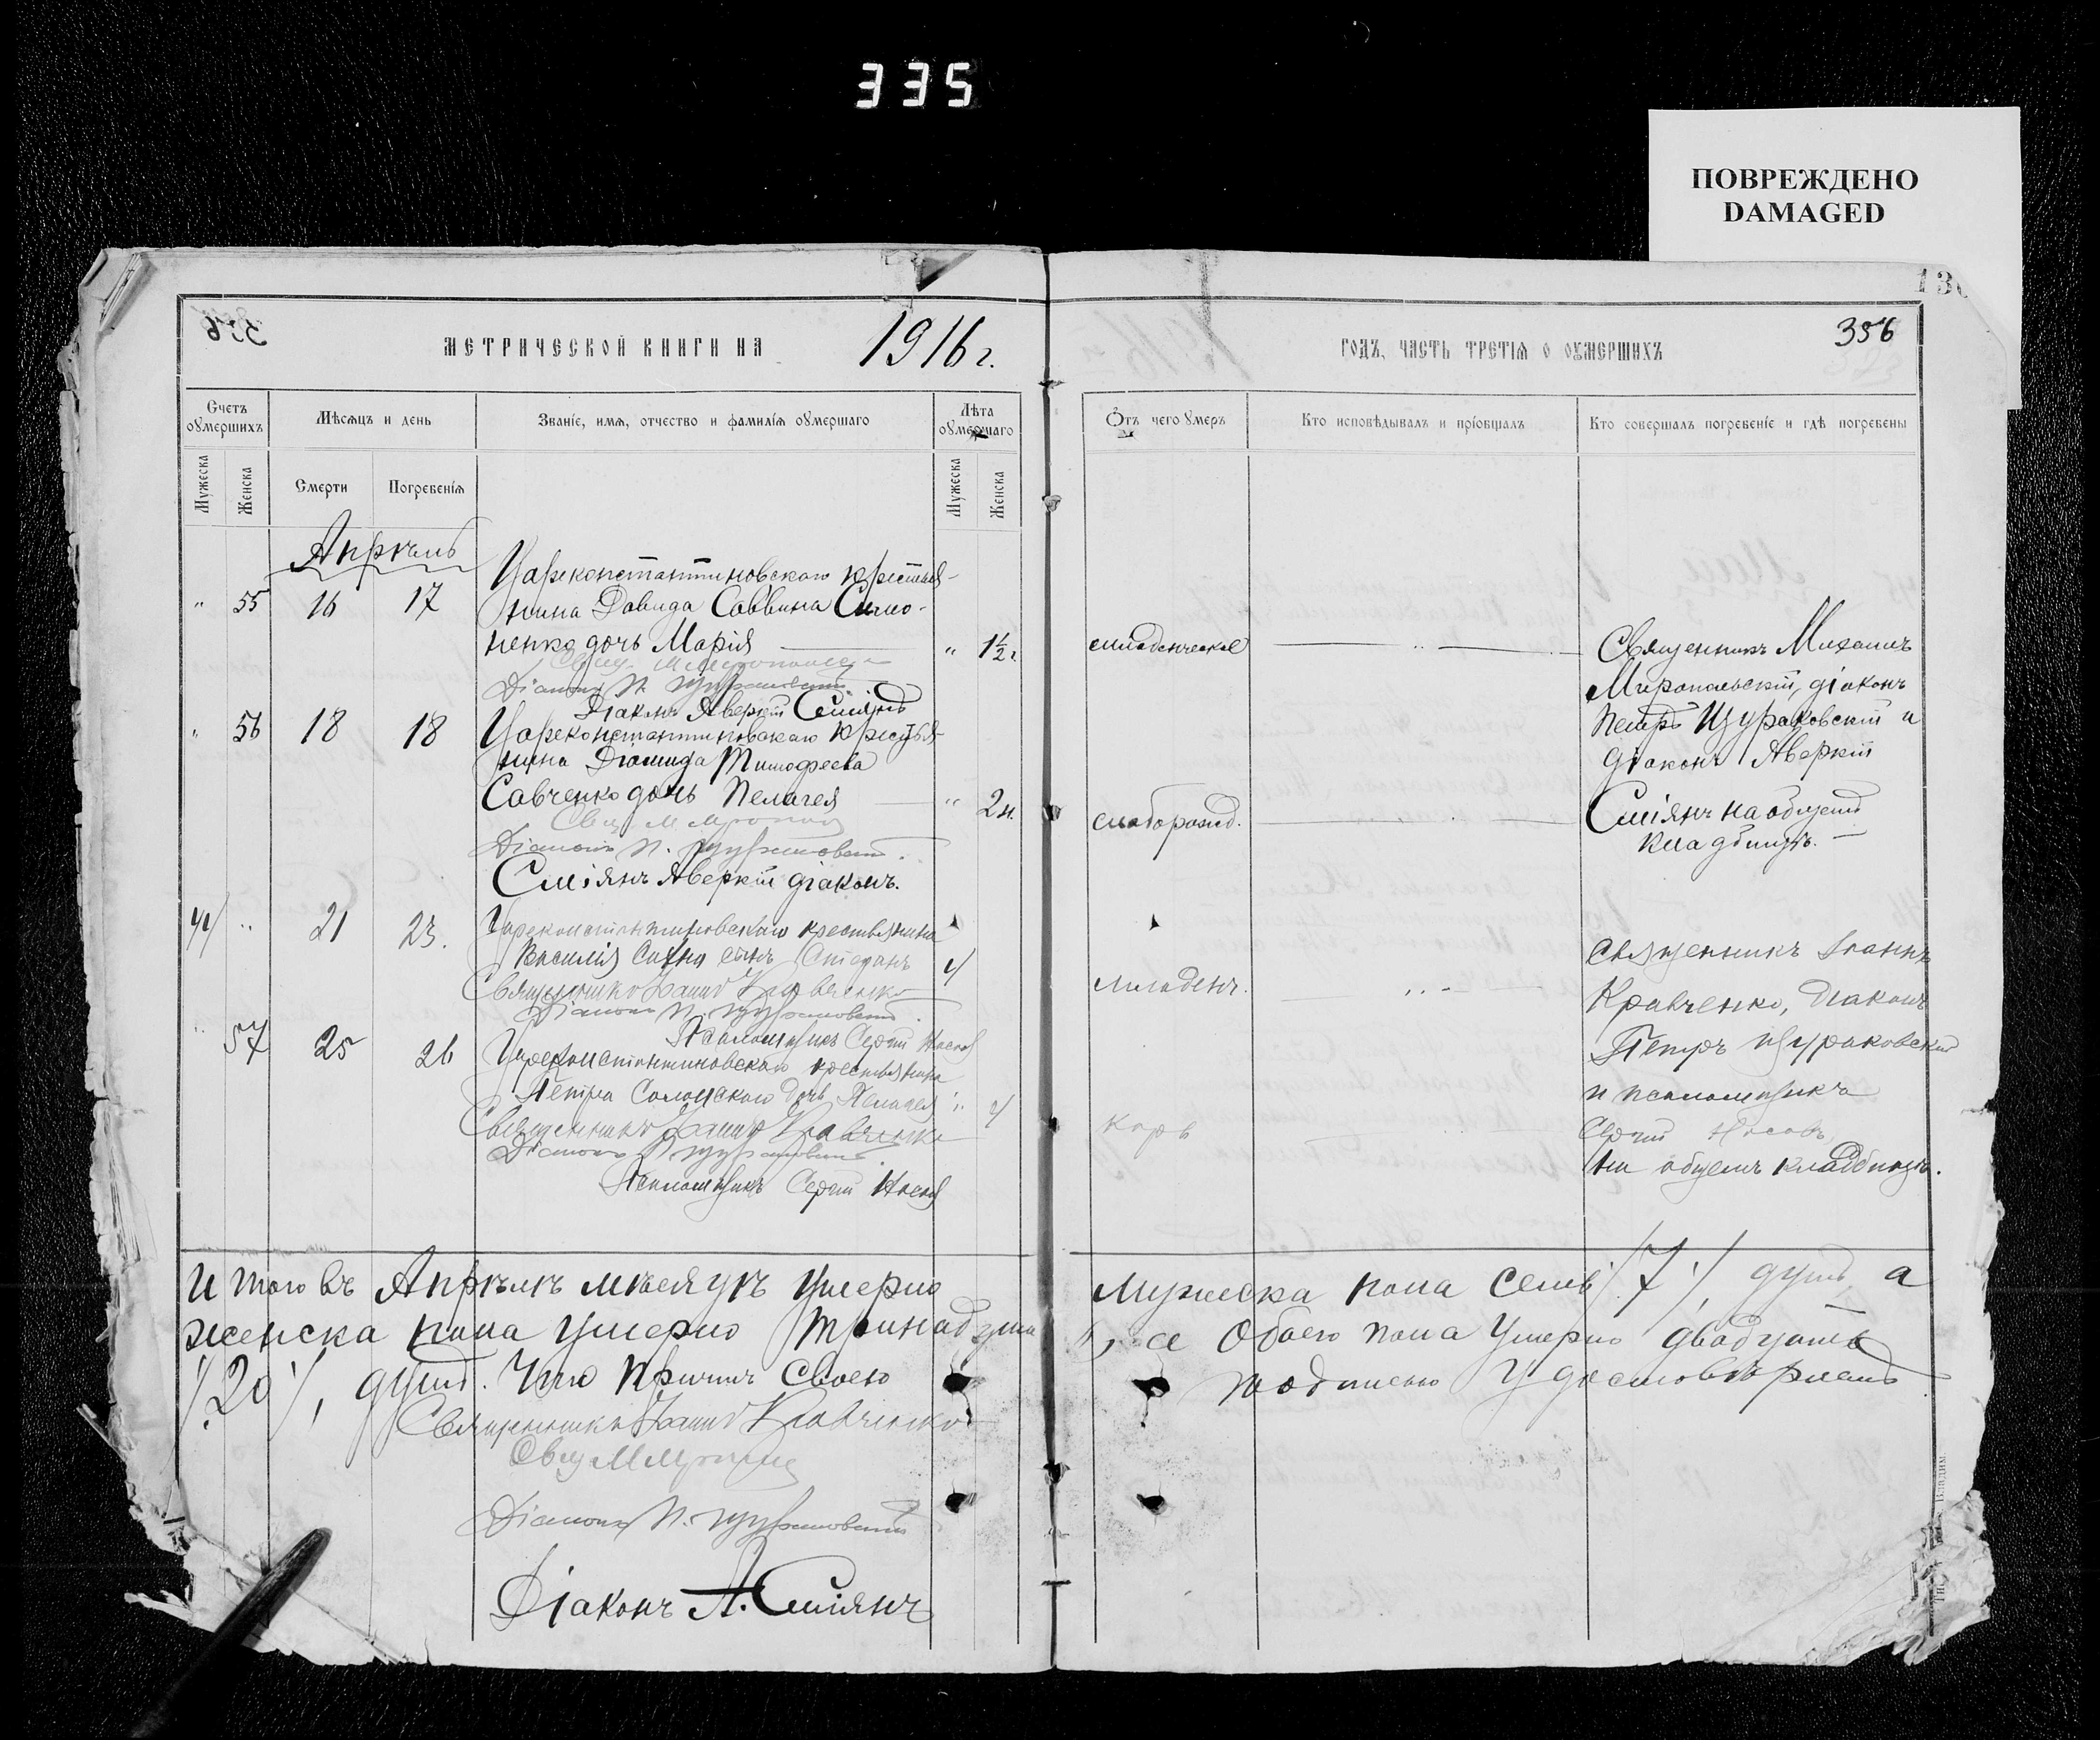 335
ПОВРЕЖДЕНО
DAMAGED
356
МЕТРИЧЕСКОЙ КНИГИ НА 1916 г.
Счетъ оумершихъ
Мѣсяцъ и день
Званіе, имя, отчество и фамилія оумершаго
Лѣта оумершаго
Мужеска
Женска
Смерти
Погребенія
Мужеска
Женска
Апрѣль
Цареконстантиновскаго крестья-
" 55 16 17 нина Давида Саввина Симо-
ненко дочь Марія " 1½ г.
Діаконъ П. Щураковскій
Діаконъ Аверкій Сміянъ
" 56 18 18 Цареконстантиновскаго крестья-
нина Діомида Тимофеева
Савченко дочь Пелагея " 2 н.
Свящ. М. Миропол
Діаконъ П. Щураковскій.
Сміянъ Аверкій діаконъ.
41 " 21 23. Цареконстантиновскаго крестьянина
Василія сынъ Стефанъ 4
Священникъ Іоаннъ Кравченко
Діаконъ П. Щураковскій
Псаломщикъ Сергій Носовъ
" 57 25 26 Цареконстантиновскаго крестьянина
Петра дочь Пелагея " 4
Священникъ Іоаннъ Кравченко
Діаконъ П. Щураковскій
Псаломщикъ Сергій Носовъ
Итого въ Апрѣлѣ мѣсяцѣ умерло
женска пола умерло тринадцать
/20/, душъ. Что причтъ своею
Священникъ Іоаннъ Кравченко
Діаконъ П. Щураковскій
Діаконъ А. Сміянъ
356
ГОДЪ, ЧАСТЬ ТРЕТІЯ О ОУМЕРШИХЪ
Отъ чего умеръ
Кто исповѣдывалъ и пріобщалъ
Кто совершалъ погребеніе и гдѣ погребены
младенческое
Священникъ Михаилъ
Миропольскій, діаконъ
Петръ Щураковскій и
діаконъ Аверкій
слаборожд.
Сміянъ на общемъ
кладбищѣ.
младенч.
священникъ Іоаннъ
Кравченко, діаконъ
Петръ Щураковскій
и псаломщикъ
корь
Сергій Носовъ
на общемъ кладбищѣ.
мужеска пола семь /7/ душъ, а
а обоего пола умерло двадцать
подписью удостовѣряемъ